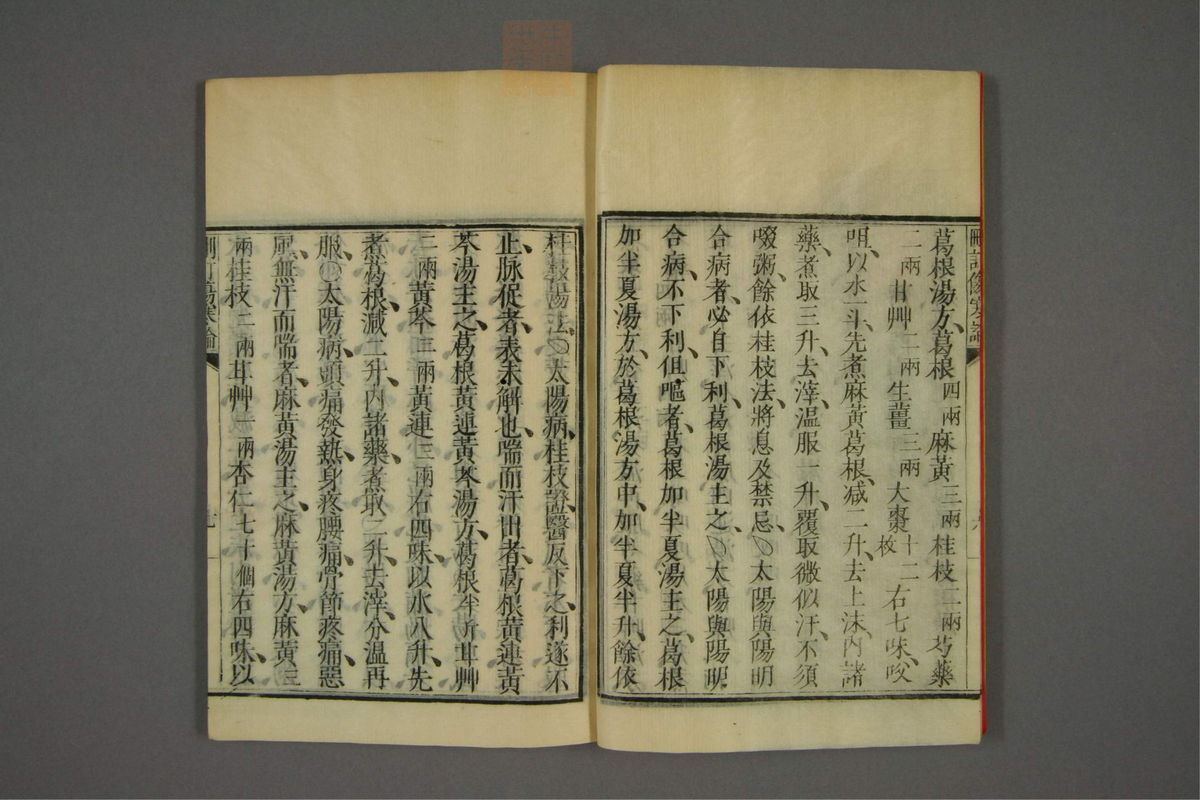 葛根湯方、葛根四兩麻黃三兩桂枝二兩芍藥
二兩甘艸二兩生薑三兩大棗十二枚右七味、㕮
咀、以水一斗、先煮麻黃葛根、減二升、去上沫、內諸
藥、煮取三升、去滓、温服一升、覆取微似汗、不須
啜粥、餘依桂枝法將息及禁忌、○太陽與陽明
合病者、必自下利、葛根湯主之、○太陽與陽明
合病、不下利、但嘔者、葛根加半夏湯主之、葛根
加半夏湯方、於葛根湯方中、加半夏半升、餘依
桂枝湯法、○太陽病、桂枝證、醫反下之、利遂不
止、脉促者、表未解也、喘而汗出者、葛根黃連黃
芩湯主之、葛根黃連黃芩湯方、葛根半斤甘艸
二兩黃芩三兩黃連三兩右四味、以水八升、先
煮葛根、減二升、內諸藥、煮取二升、去滓、分温再
服、○太陽病、頭痛發熱、身疼腰痛、骨節疼痛、惡
風、無汗而喘者、麻黃湯主之、麻黃湯方、麻黃三
兩桂枝二兩甘艸一兩杏仁七十個右四味、以
刪訂傷寒論